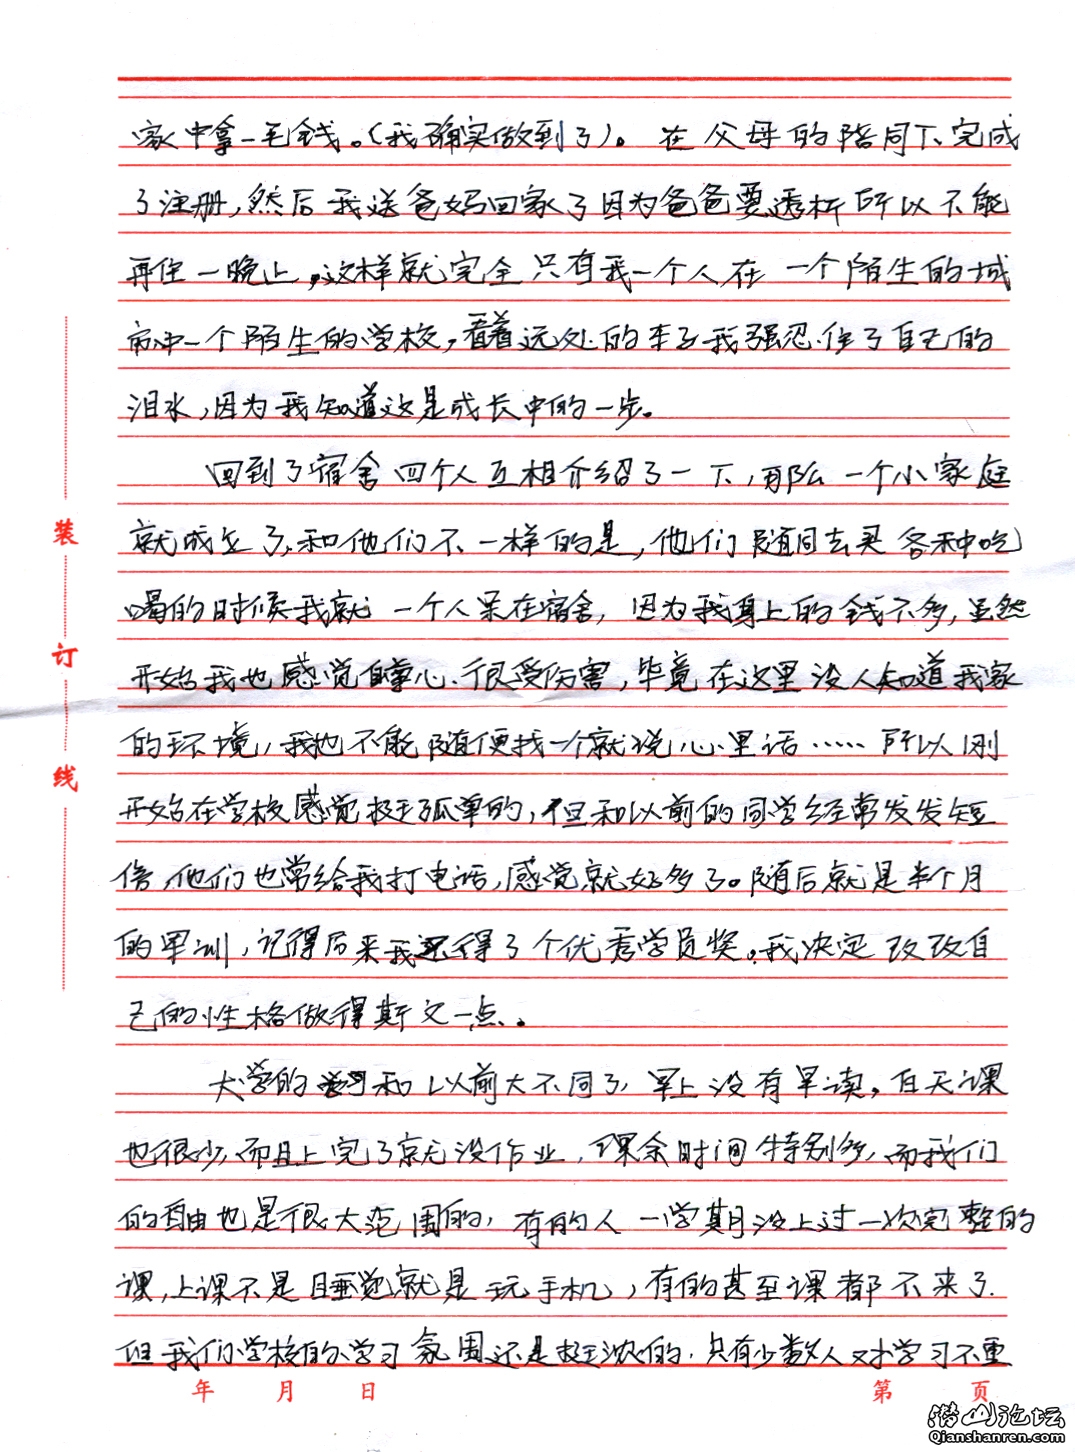 家中拿一毛钱。(我确实做到了)。在父母的陪同下完成
了注册,然后我送爸妈回家了因为爸爸要透析所以不能
再住一晚上,这样就完全只有我一个人在一个陌生的城
市中一个陌生的学校,看着远处的车子我强忍住了自己的
泪水,因为我知道这是成长中的一步。
回到了宿舍四个人互相介绍了一下,那么一个小家庭
就成立了,和他们不一样的是,他们随同去买各种吃
喝的时候我就一个人呆在宿舍,因为我身上的钱不多,虽然
开始我也感觉自尊心很受伤害,毕竟在这里没人知道我家
的环境,我也不能随便找一个就说心里话……所以刚
开始在学校感觉挺孤单的,但和以前的同学经常发发短
信,他们也常给我打电话,感觉就好多了。随后就是半个月
的军训,记得后来我还得了个优秀学员奖。我决定改改自
己的性格做得斯文一点。
大学的学习和以前大不同了,早上没有早读,白天课
也很少,而且上完了就没作业,课余时间特别多,而我们
的自由也是很大范围的,有的人一学期没上过一次完整的
课,上课不是睡觉就是玩手机,有的甚至课都不来了.
但我们学校的学习氛围还是挺浓的,只有少数人对学习不重
装
订
线
年 月 日 第 页
潜山论坛
Qianshanren.com